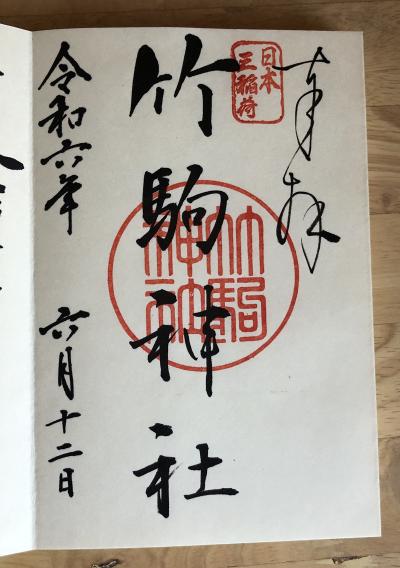 奉拝
日本
三稲荷
竹駒神社
竹駒
神社
令和六年 六月十二日